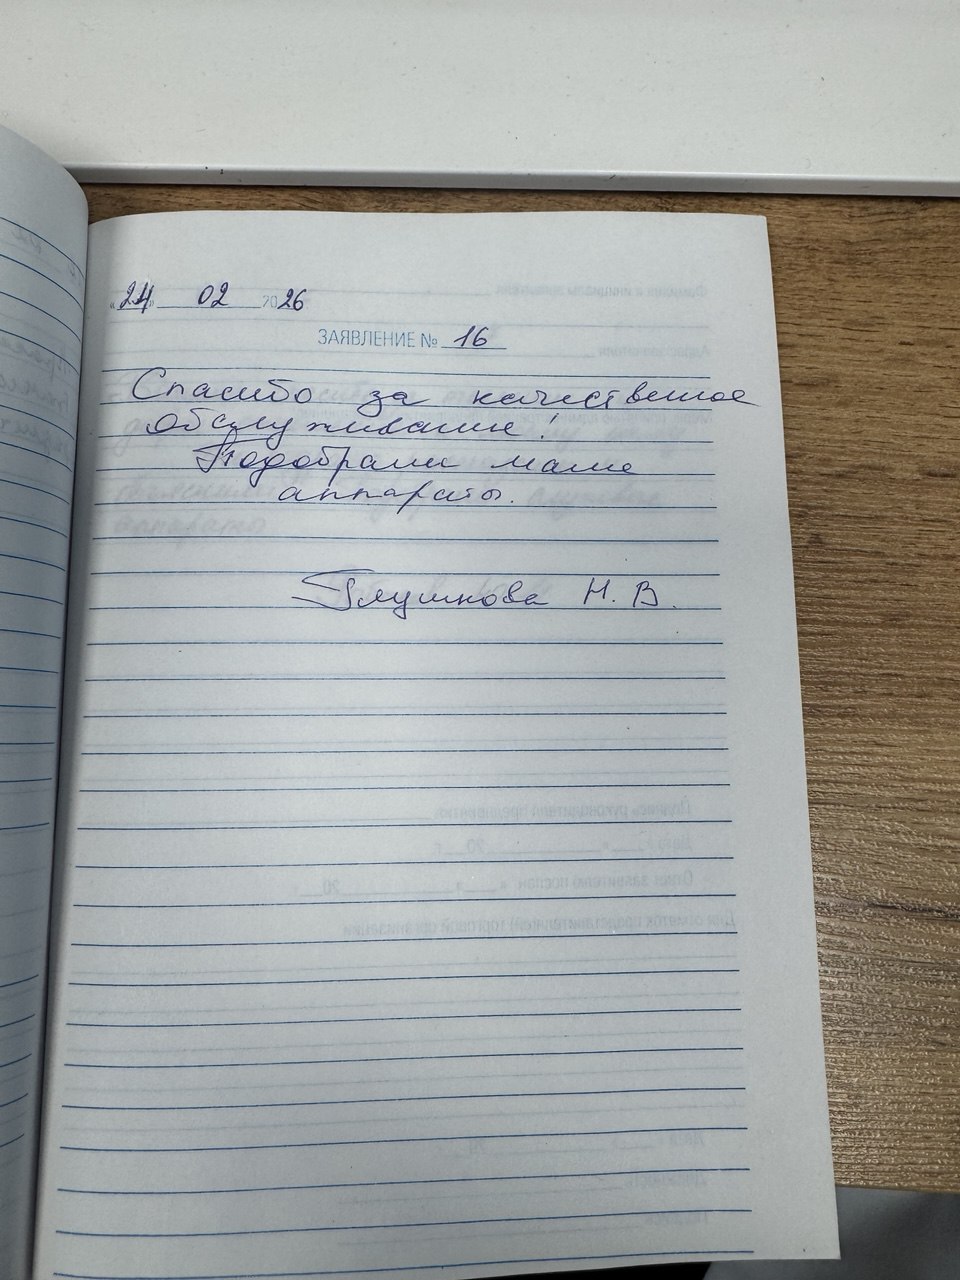 «24» 02 2026
ЗАЯВЛЕНИЕ № 16
Спасибо за качественное
обслуживание!
Подобрали маме
аппараты.
Глушкова Н. В.